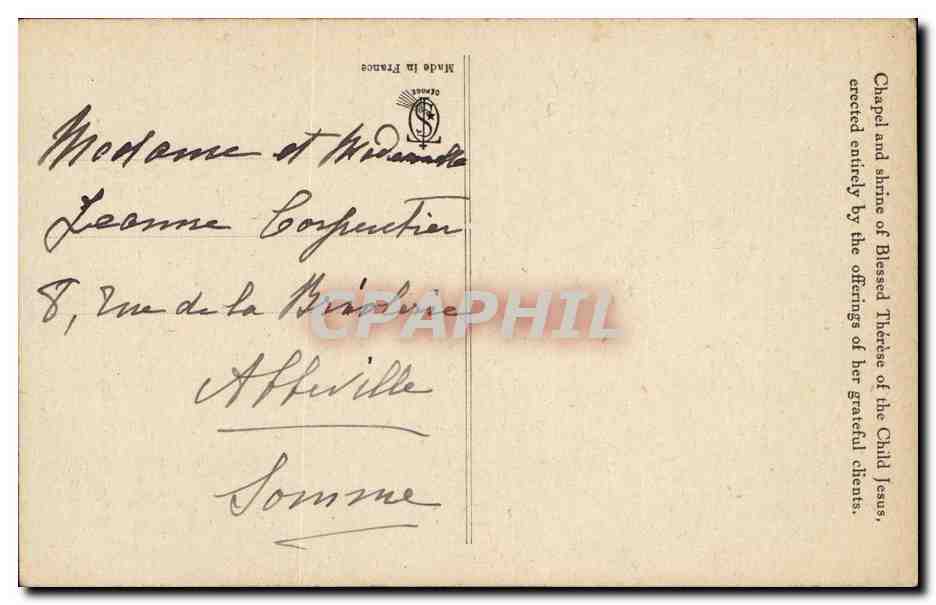 Made in France
DÉPOSÉ
Madame et Mademoiselle
Jeanne Carpentier
8, rue de la
Abbeville
Somme
CPAPHIL
Chapel and shrine of Blessed Thérèse of the Child Jesus,
erected entirely by the offerings of her grateful clients.